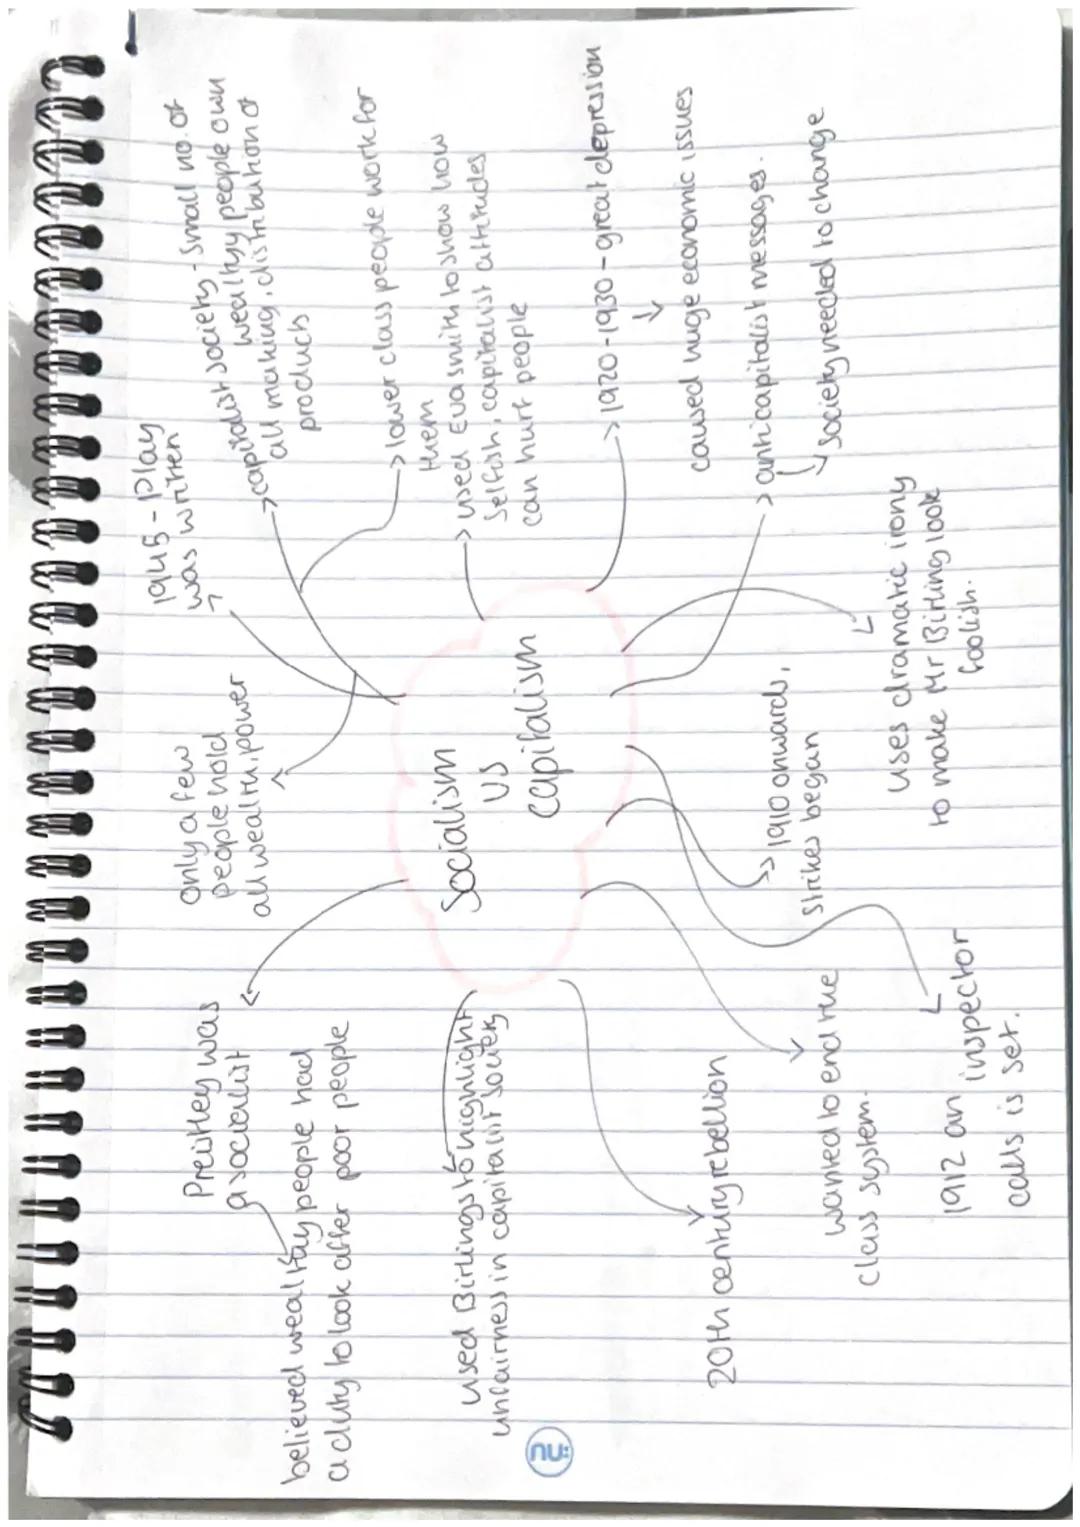 Socialism
vs
capitalism
1945 - Play
was written
capitalist society - small no. of
wealthy people own
all making, distribution of
products
lower class people work for
them
only a few
people hold
all wealth, power
used Eva smith to show how
selfish, capitalist attitudes
can hurt people
1920-1930 - great depression
caused huge economic issues
anticapitalist messages.
society needed to change
uses dramatic irony
to make Mr Birling look
foolish.
1910 onwards,
strikes began
1912 an inspector
calls is set.
wanted to end the
class system.
20th century rebellion
used Birlings to highlight
unfairness in capitalist society
Preistley was
a socialist
believed wealthy people had
a duty to look after poor people
nu: